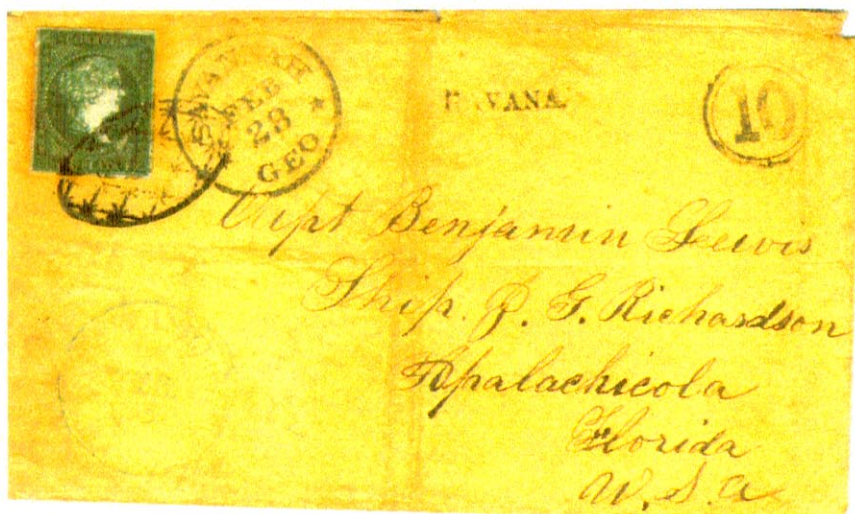 SAVANNAH
FEB
28
GEO
HAVANA
10
Capt Benjamin Lewis
Ship. J. G. Richardson
Apalachicola
Florida
U. S. a